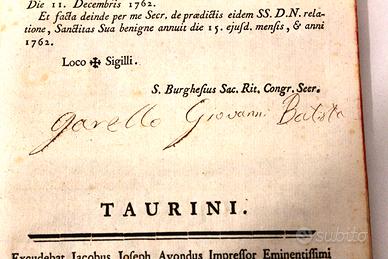 Die 11. Decembris 1762.
Et facta deinde per me Secr. de prædictis eidem SS. D.N. rela-
tione, Sanctitas Sua benigne annuit die 15. ejusd. mensis, & anni
1762.
Loco ✠ Sigilli.
S. Burghesius Sac. Rit. Congr. Secr.
Garello Giovanni Batista
TAURINI.
subito
Excudebat Jacobus Joseph Avondus Impressor Eminentissimi